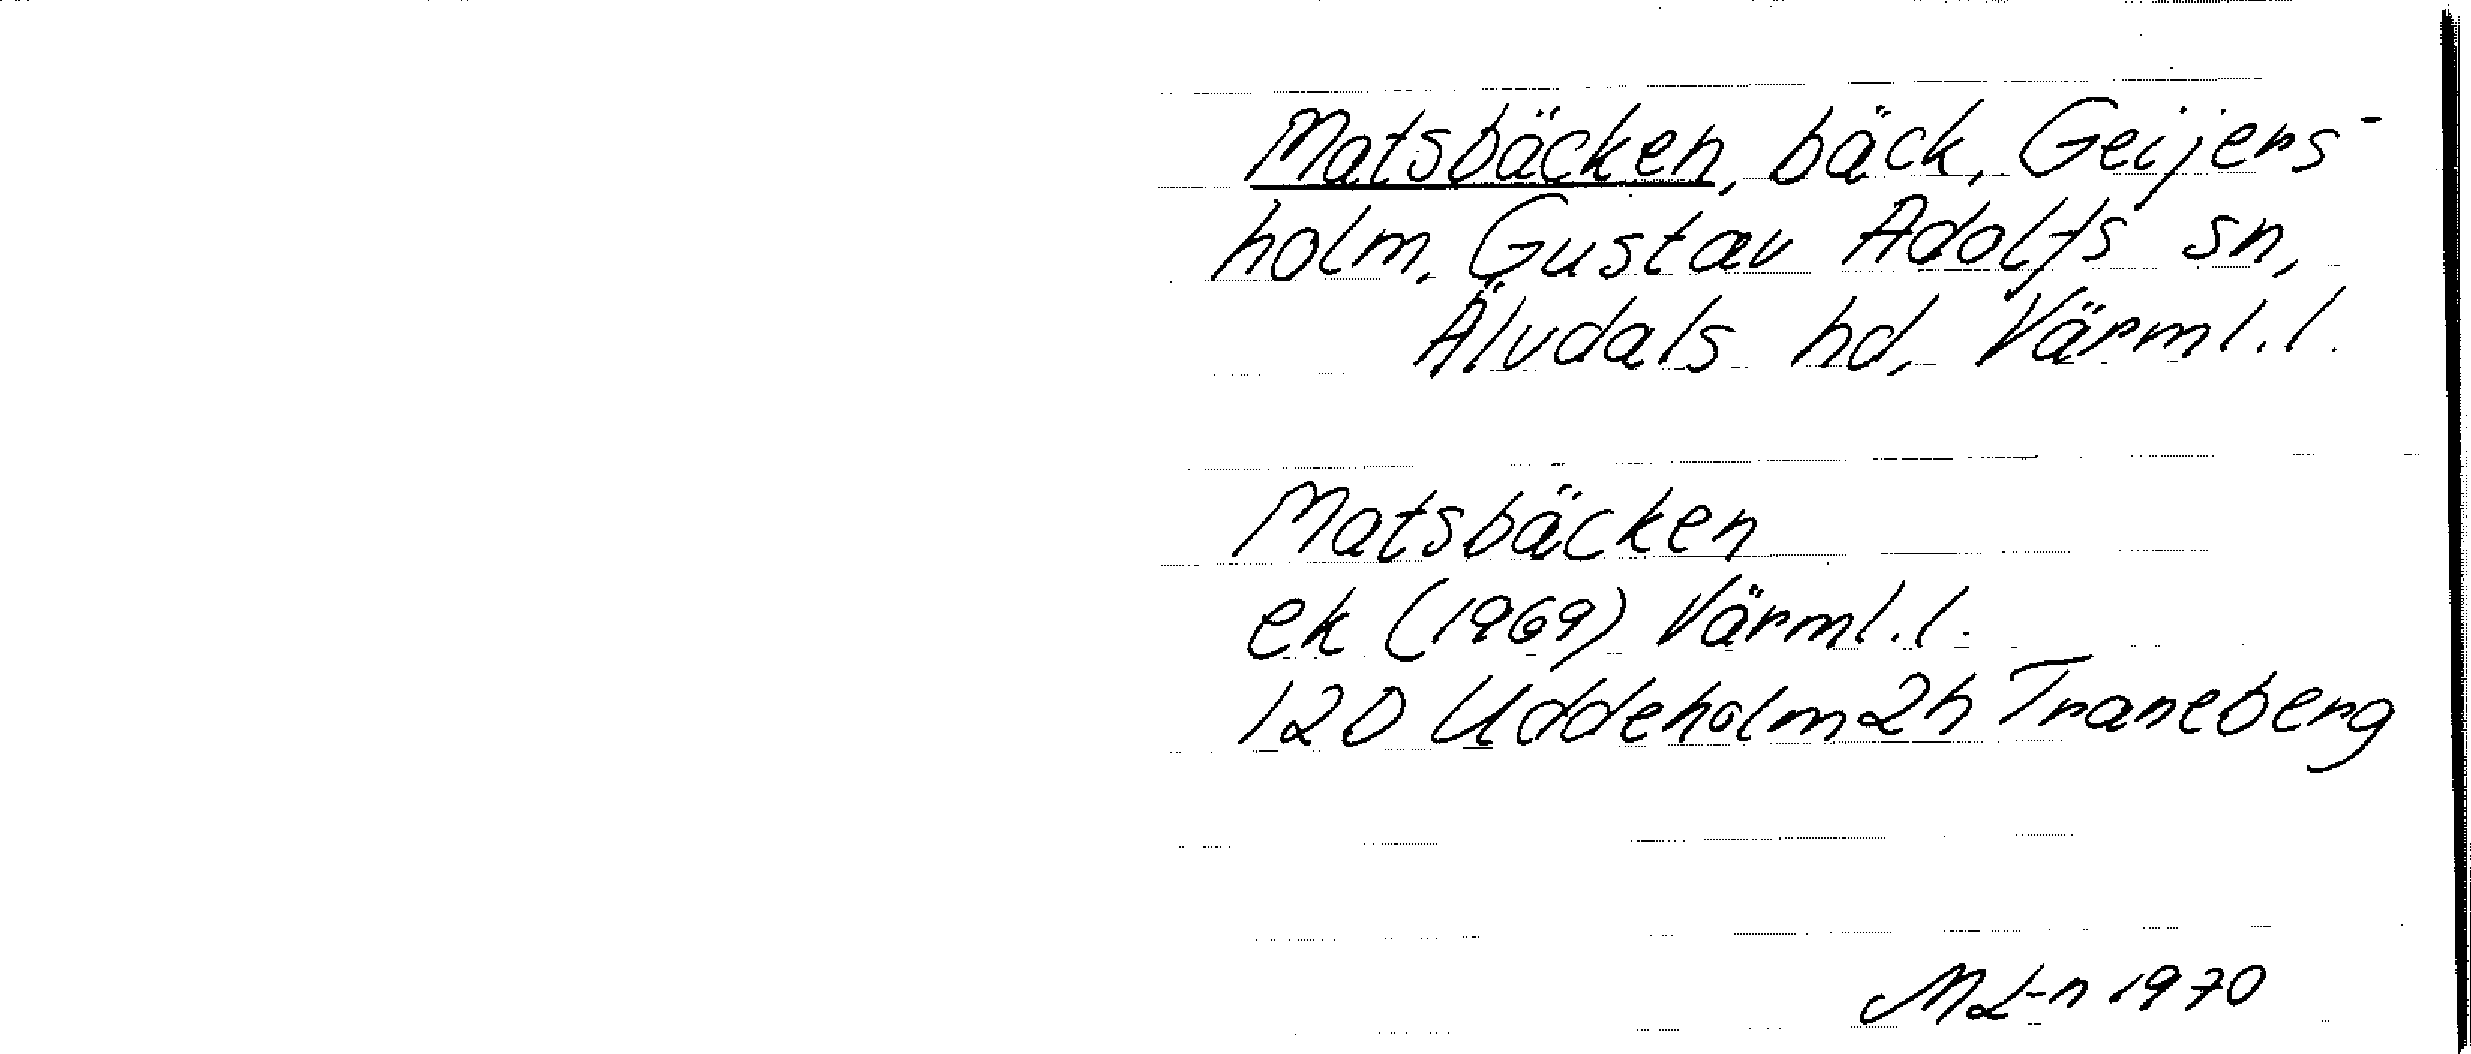 Matsbäcken, bäck, Geijers-
holm, Gustav Adolfs sn,
Älvdals hd, Värml. l.
Matsbäcken
ek (1969) Värml. l.
12D Uddeholm 2h Traneberg
M L-n 1970